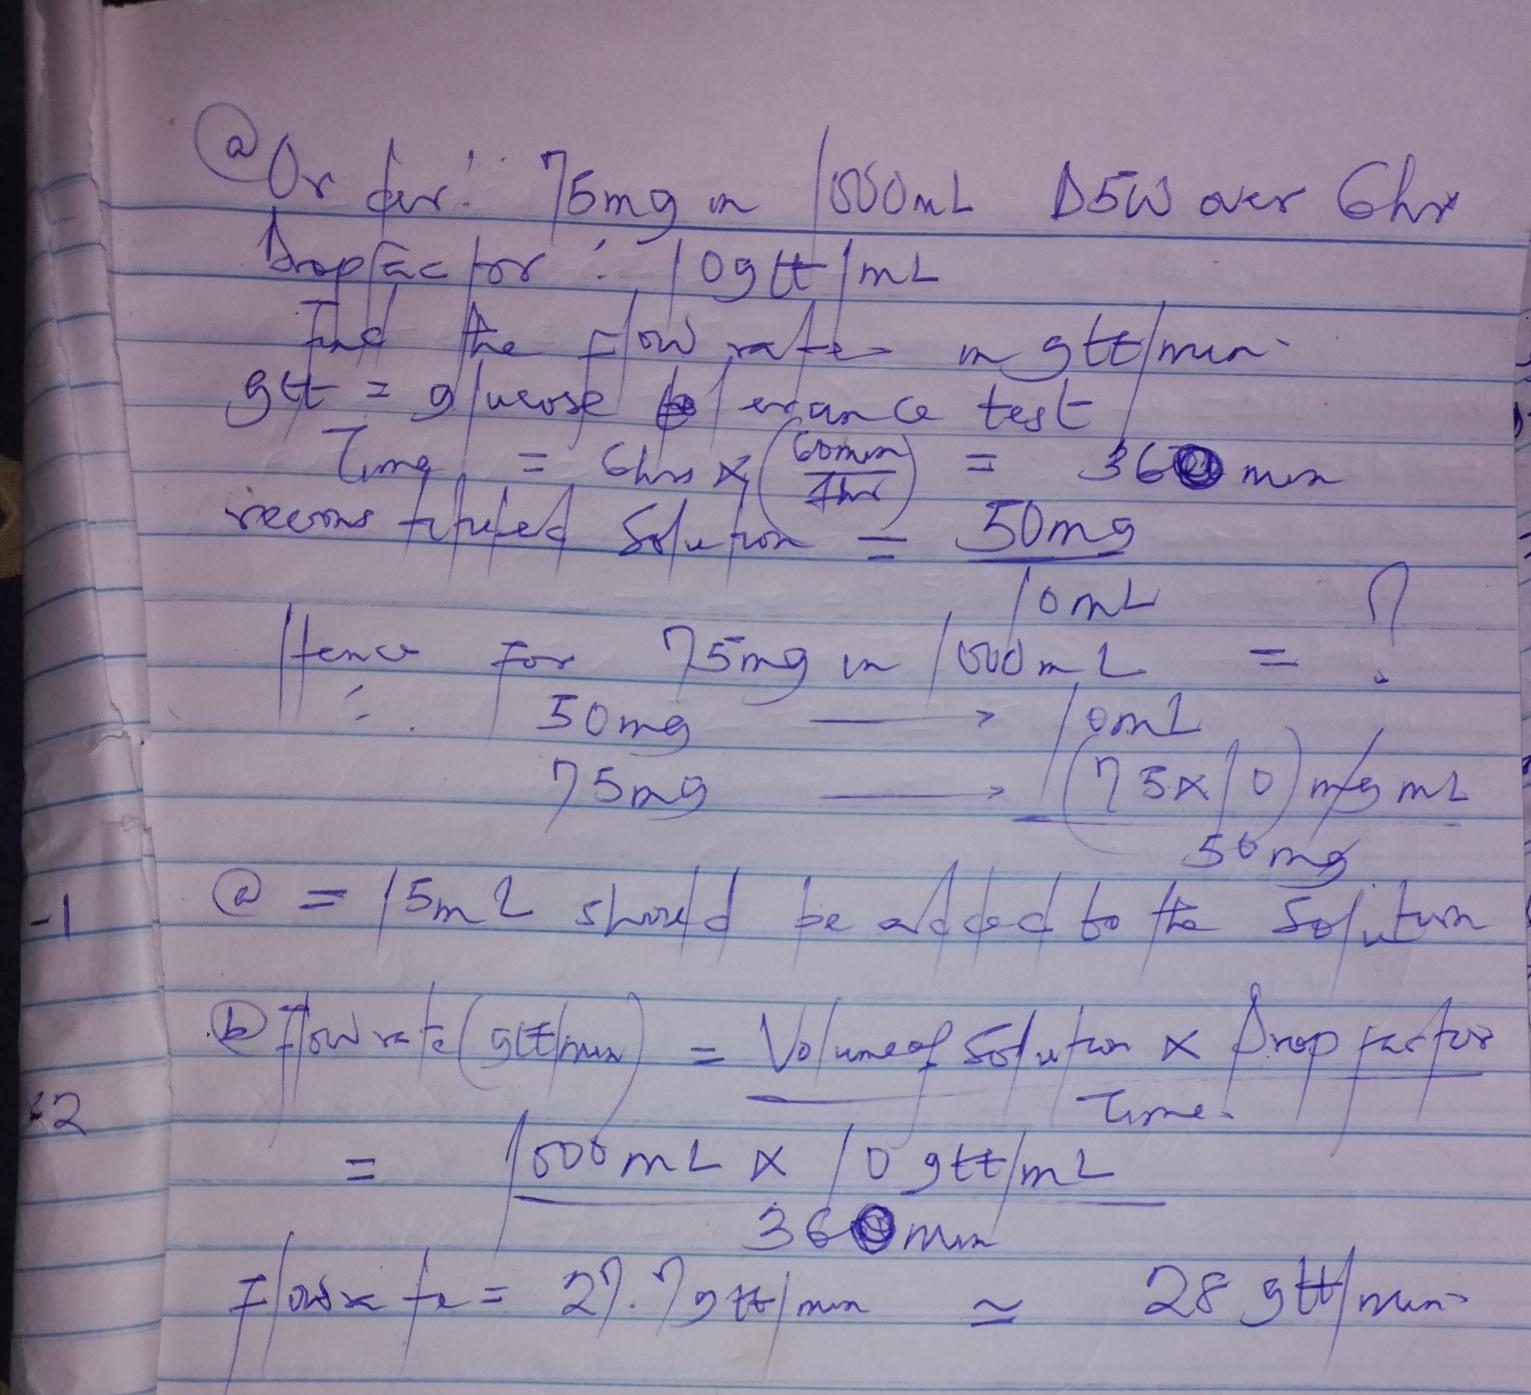 ⓐ Order: 75mg in 1000mL D5W over 6hrs
Drop factor : 10gtt/mL
Find the flow rate in gtt/min.
gtt = glucose tolerance test
Time = 6hrs x (60min/1hr) = 360 min
reconstituted Solution = 50mg
10mL
Hence For 75mg in 1000mL = ?
∴ 50mg → 10mL
75mg → (75x10) mg mL
50mg
-1
ⓐ = 15mL should be added to the Solution
ⓑ Flow rate (gtt/min) = Volume of Solution x Drop factor
-2
Time.
= 1000mL x 10gtt/mL
360min
Flow rate = 27.7gtt/min ≃ 28 gtt/min